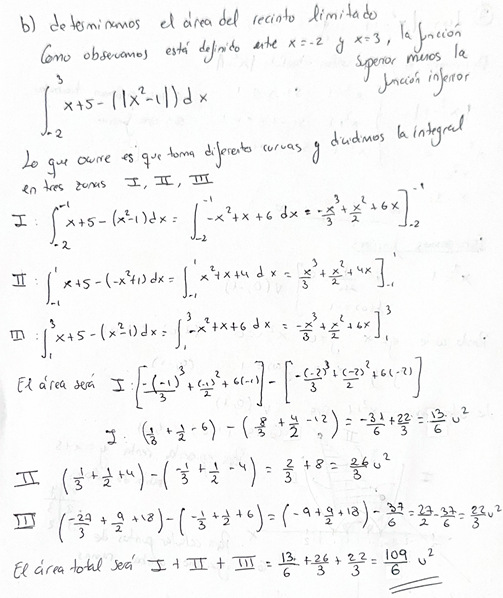 b) determinamos el área del recinto limitado
Como observamos está definido entre x=-2 y x=3, la función
superior menos la
función inferior
∫_{-2}^{3} x+5-(|x²-1|) dx
Lo que ocurre es que toma diferentes curvas y dividimos la integral
en tres zonas I, II, III
I: ∫_{-2}^{-1} x+5-(x²-1) dx = ∫_{-2}^{-1} -x²+x+6 dx = -x³/3 + x²/2 + 6x]_{-2}^{-1}
II: ∫_{-1}^{1} x+5-(-x²+1) dx = ∫_{-1}^{1} x²+x+4 dx = x³/3 + x²/2 + 4x]_{-1}^{1}
III: ∫_{1}^{3} x+5-(x²-1) dx = ∫_{1}^{3} -x²+x+6 dx = -x³/3 + x²/2 + 6x]_{1}^{3}
El área será I: [-(-1)³/3 + (-1)²/2 + 6(-1)] - [-(-2)³/3 + (-2)²/2 + 6(-2)]
I: (1/3 + 1/2 - 6) - (8/3 + 4/2 - 12) = -31/6 + 22/3 = 13/6 u²
II (1/3 + 1/2 + 4) - (-1/3 + 1/2 - 4) = 2/3 + 8 = 26/3 u²
III (-27/3 + 9/2 + 18) - (-1/3 + 1/2 + 6) = (-9 + 9/2 + 18) - 37/6 = 27/2 - 37/6 = 22/3 u²
El área total será I + II + III = 13/6 + 26/3 + 22/3 = 109/6 u²